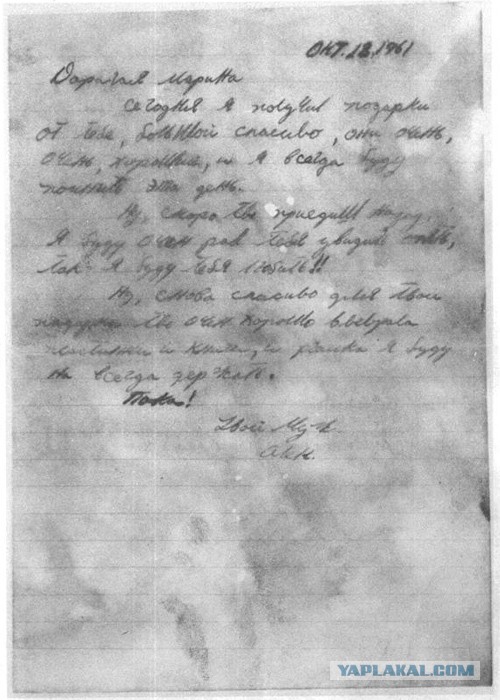 Окт. 18. 1961
Дарагая Марина
Сегодня я получив подарки
от тебе, большой спасиво, они очень,
очень, хорошие, и я всегда буду
помнить эта день.
Ну, скоро ты приедиш назад.
Я буду очен рав тебя увидит опять,
так я буду тебя любить!!
Ну, снова спасиво для твои
ты очен хорошо
и книги, и я буду
на всегда держать.
Пока!
Твой Муж
YAPLAKAL.COM